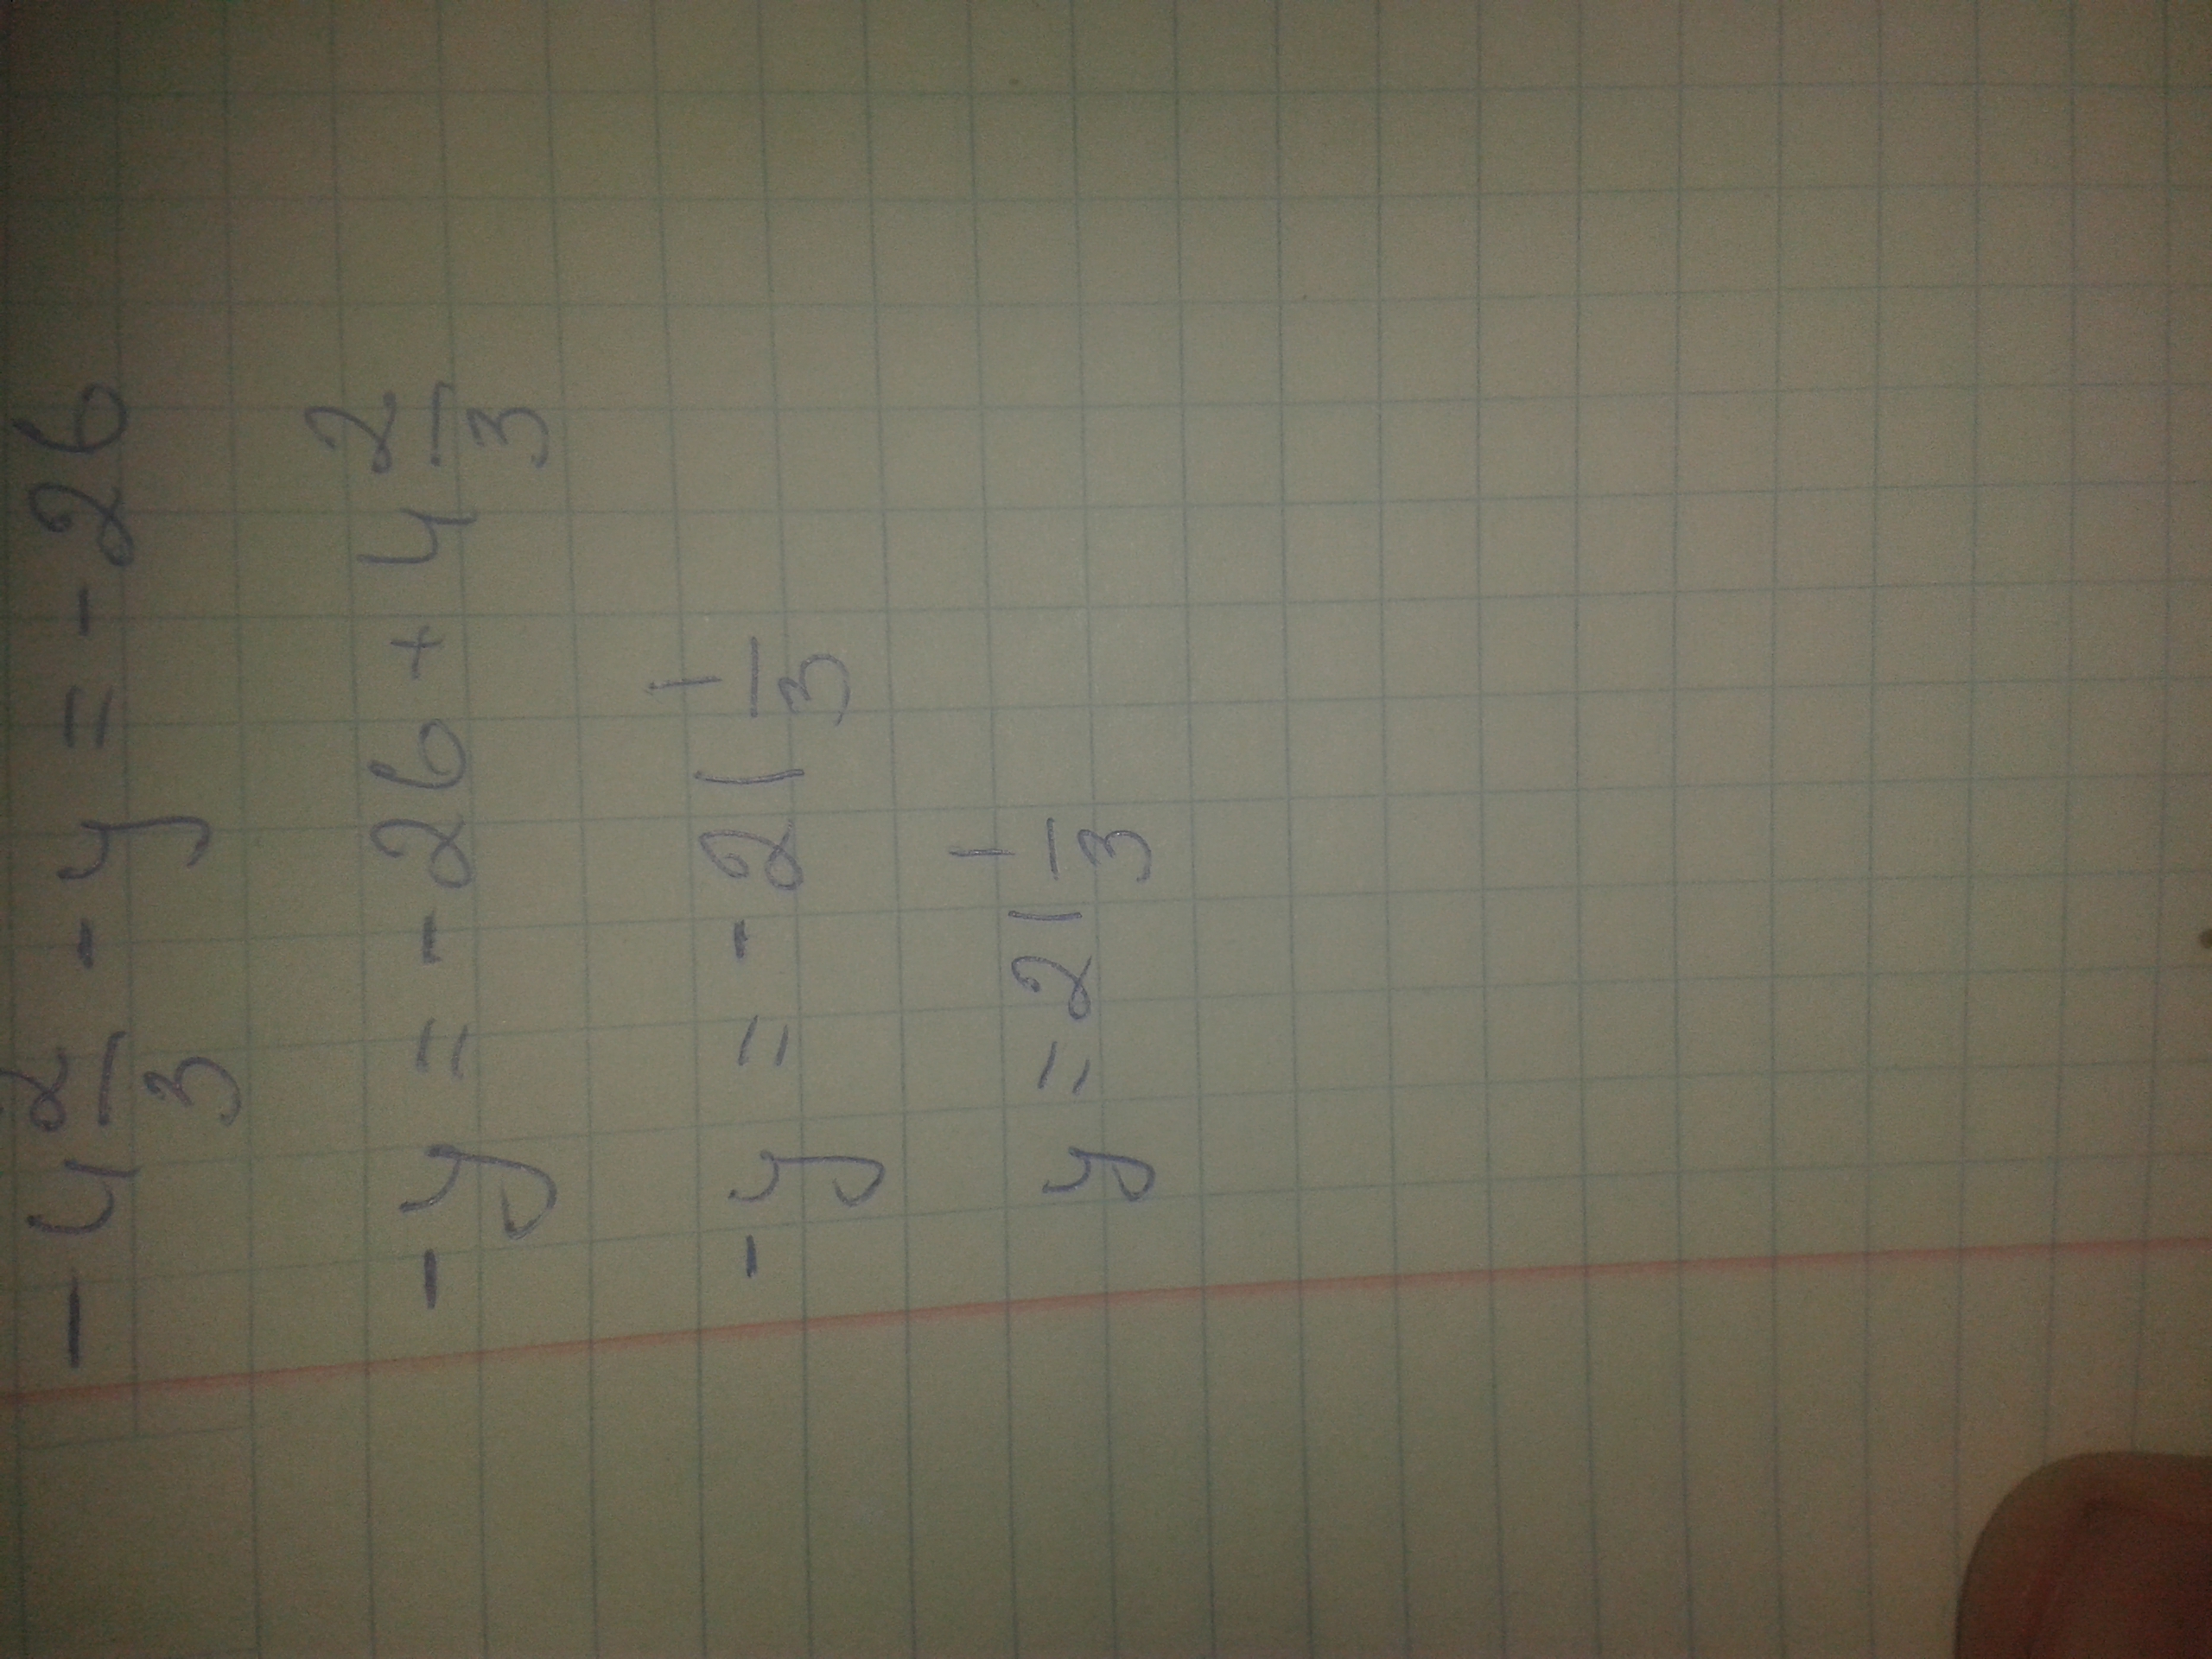 -4 2/3 - y = -26
-y = -26 + 4 2/3
-y = -21 1/3
y = 21 1/3